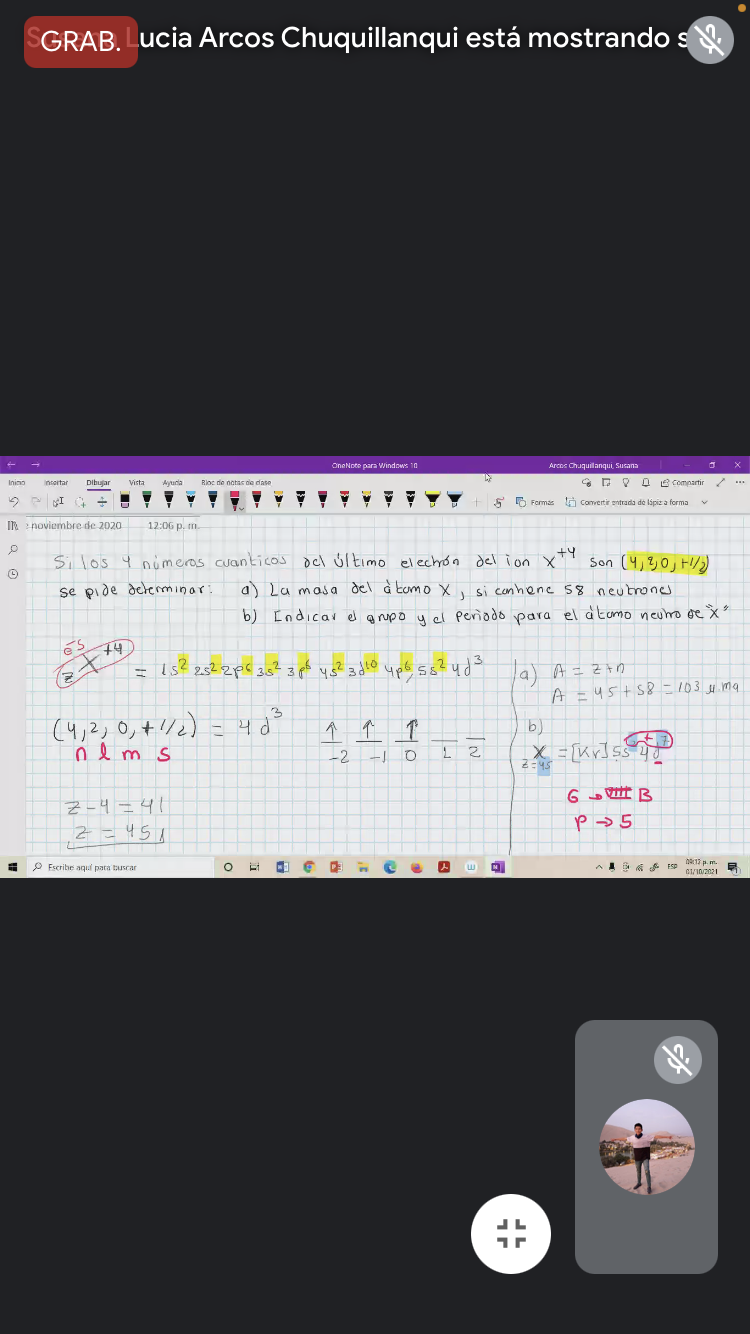 GRAB.
Lucia Arcos Chuquillanqui está mostrando s
OneNote para Windows 10
Arcos Chuquillanqui, Susana
Inicio Insertar Dibujar Vista Ayuda Bloc de notas de clase
Compartir
Formas
Convertir entrada de lápiz a forma
noviembre de 2020 12:06 p. m.
Si los 4 números cuanticos del último electrón del ion X+4 son (4,2,0,+1/2)
se pide determinar: a) La masa del átomo X, si contiene 58 neutrones
b) Indicar el grupo y el periodo para el átomo neutro de "X"
zX+4 = 1s2 2s2 2p6 3s2 3p6 4s2 3d10 4p6, 5s2 4d3
(4,2,0,+1/2) = 4d3
n l m s
↑ ↑ ↑
-2 -1 0 1 2
z-4 = 41
z = 45
a) A = z+n
A = 45+58 = 103
b)
X = [Kr] 5s2 4d7
z=45
+
G → VIII B
P → 5
Escribe aquí para buscar
ESP
09:12 p. m.
01/10/2021